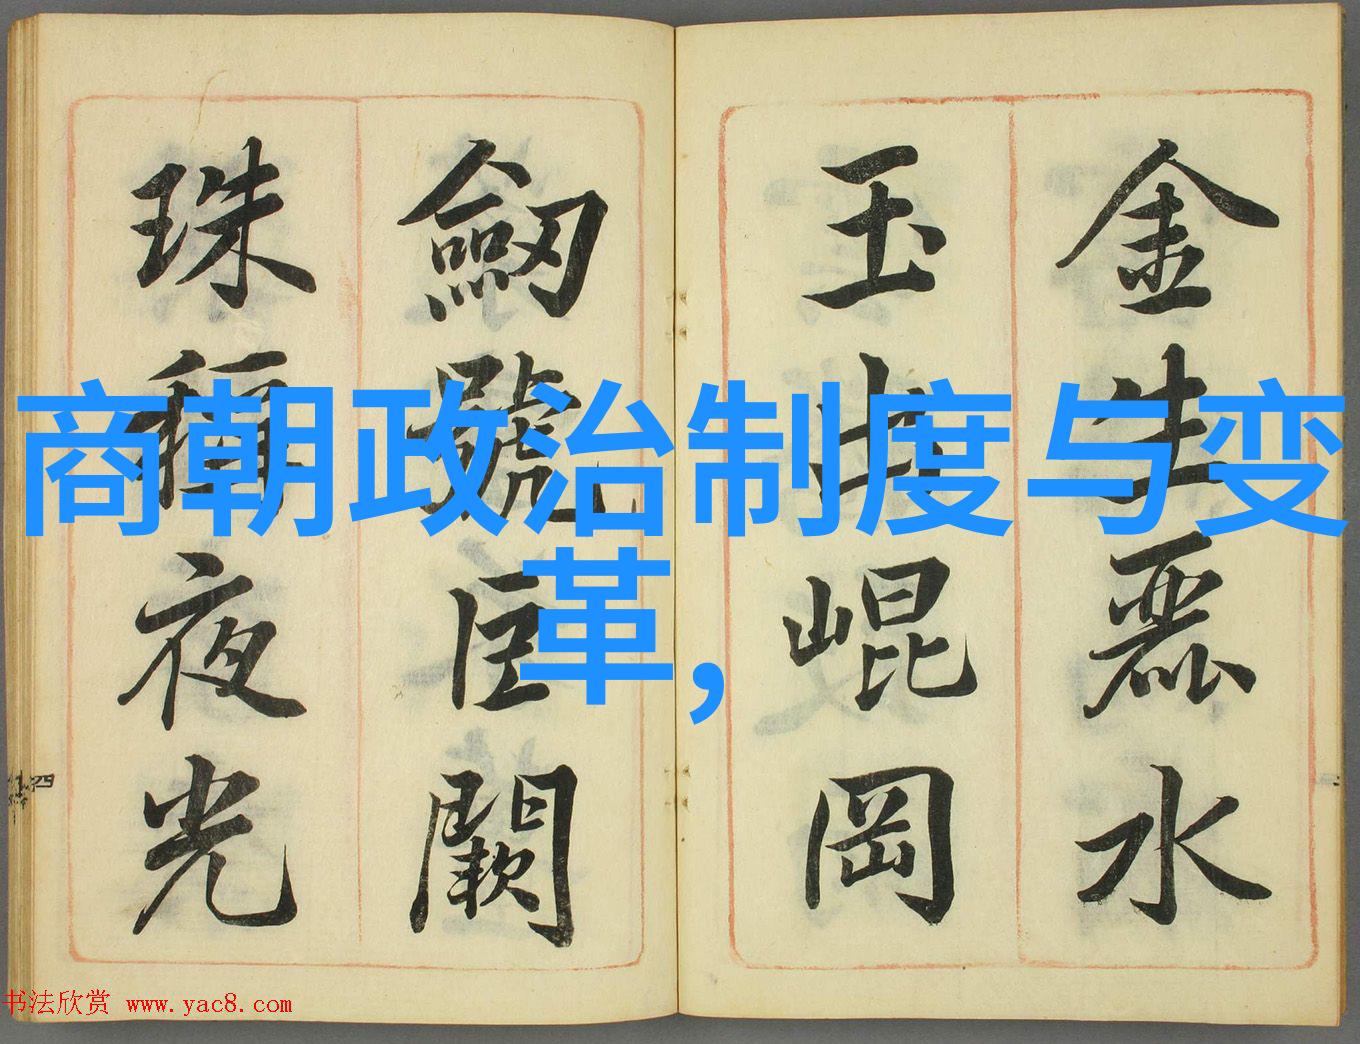 商朝政治制度与变
革,
金生麗水
玉出崐岡
劒號巨闕
珠稱夜光
四
书法欣赏 www.yac8.com